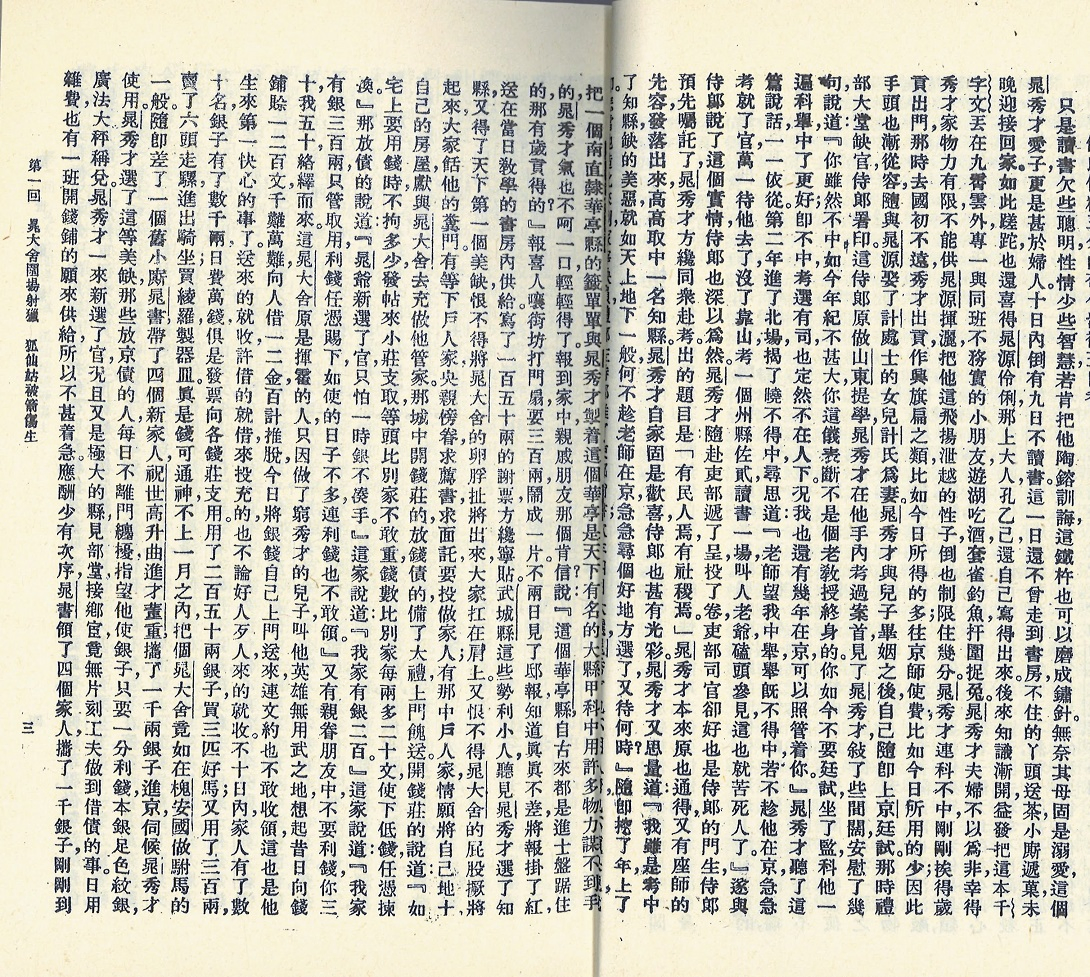 只是讀書欠些聰明,性情少些智慧;若肯把他陶鎔訓誨,這鐵杵也可以磨成繡針。無奈其母固是溺愛,這個
晁秀才愛子更是甚於婦人。十日內倒有九日不讀書,這一日還不曾走到書房,不住的丫頭送茶,小廝遞菓,未
晚迎接回家。如此蹉跎,也還喜得晁源伶俐,那上大人孔乙己還自己寫得出來。後來知識漸開,益發把這本千
字文丟在九霄雲外,專一與同班不務實的小朋友遊湖吃酒,套雀釣魚,扞圍捉兔。晁秀才夫婦不以爲非。幸得
秀才家物力有限,不能供晁源揮灑,把他這飛揚泄越的性子倒也制限住幾分。晁秀才連科不中,剛剛挨得歲
貢出門。那時去國初不遠,秀才出貢,作興旗扁之類,比如今日所得的多;往京師使費,比如今日所用的少:因此
手頭也漸從容。隨與晁源娶了計處士的女兒計氏爲妻。晁秀才與兒子畢姻之後,自己隨即上京廷試。那時禮
部大堂缺官,侍郎署印。這侍郎原做山東提學,晁秀才在他手內考過案首。見了晁秀才,敍了些間闊,安慰了幾
句,說道:『你雖然不中,如今年紀不甚大,你這儀表斷不是個老敎授終身的。你如今不要廷試,坐了監,科他一
遍科,舉中了更好,卽不中,考選有司,也定然不在人下。況我也還有幾年在京,可以照管着你。』晁秀才聽了這
篇說話,一一依從。第二年進了北場,揭了曉,不得中,尋思道:『老師望我中舉,舉旣不得中,若不趁他在京,急急
考就了官,萬一待他去了,沒了靠山,考一個州縣佐貳,讀書一場,叫人老爺,磕頭參見,這也就苦死人了。』遂與
侍郎說了這個實情,侍郎也深以爲然。晁秀才隨赴吏部遞了呈,投了卷。吏部司官卻好也是侍郎的門生,侍郎
預先囑託了,晁秀才方纔同衆赴考。出的題目是「有民人焉有社稷焉」。晁秀才本來原也通得,又有座師的
先容,發落出來,高高取中一名知縣。晁秀才自家固是歡喜,侍郎也甚有光彩。晁秀才又思量道:『我雖是考中
了知縣,缺的美惡就如天上地下一般,何不趁老師在京,急急尋個好地方選了,又待何時?』隨卽挖了年,上了
把一個南直隸華亭縣的籤單單與晁秀才掣着。這個華亭是天下有名的大縣,甲科中用許多物力謀不到手
的,晁秀才氣也不呵一口,輕輕得了。報到家中,親戚朋友那個肯信?說:『這個華亭縣,自古來都是進士盤踞住
的,那有歲貢得的?』報喜人嚷街坊,打門扇,要三百兩,鬧成一片。不兩日,見了邸報,知道眞眞不差,將報掛了紅,
送在當日敎學的書房內供給,寫了一百五十兩的謝票,方纔寧貼。武城縣這些勢利小人聽見晁秀才選了知
縣,又得了天下第一個美缺,恨不得將晁大舍的卵脬扯將出來,大家扛在肩上,又恨不得晁大舍的屁股撅將
起來,大家餂他的糞門。有等下戶人家,央親傍眷,求薦書,求面託,要投做家人;有那中戶人家情願將自己地土,
自己的房屋,獻與晁大舍,去充做他管家。那城中開錢莊的,放錢債的,備了大禮,上門餽送。開錢莊的說道:『如
宅上要用錢時,不拘多少,發帖來小莊支取,等頭比別家不敢重,錢數比別家每兩多二十文,使下低錢任憑揀
渙。』那放債的說道:『晁爺新選了官,只怕一時銀不湊手。』這家說道:『我家有銀二百。』這家說道:『我家
有銀三百兩,只管取用,利錢任憑賜下,如使的日子不多,連利錢也不敢領。』又有親眷朋友中,不要利錢,你三
十,我五十,絡繹而來。這晁大舍原是揮霍的人,只因做了窮秀才的兒子,叫他英雄無用武之地。想起昔日向錢
鋪賒一二百文,千難萬難;向人借一二金,百計推脫;今日將銀錢自己上門送來,連文約也不敢收領,這也是他
生來第一快心的事了。送來的就收,許借的就借,來投充的也不論好人歹人,來的就收,不十日內,家人有了數
十名,銀子有了數千兩。日費萬錢,俱是發票向各錢莊支用。用了二百五十兩銀子買三匹好馬,又用了三百兩
賣了六頭走騾,進出騎坐。買綾羅,製器皿,眞是錢可通神!不上一月之內,把個晁大舍竟如在槐安國做駙馬的
一般。隨卽差了一個舊小廝晁書,帶了四個新家人祝世、高升、曲進才、董重,攜了一千兩銀子,進京伺候晁秀才
使用。晁秀才選了這等美缺,那些放京債的人每日不離門纏擾,指望他使銀子,只要一分利錢,本銀足色紋銀,
廣法大秤稱兌。晁秀才一來新選了官,況且又是極大的縣,見部堂,接鄕宦,竟無片刻工夫做到借債的事。日用
雜費也有一班開錢鋪的願來供給,所以不甚着急。應酬少有次序,晁書領了四個家人,攜了一千銀子,剛剛到
第一回 晁大舍圍場射獵 狐仙姑被箭傷生
三